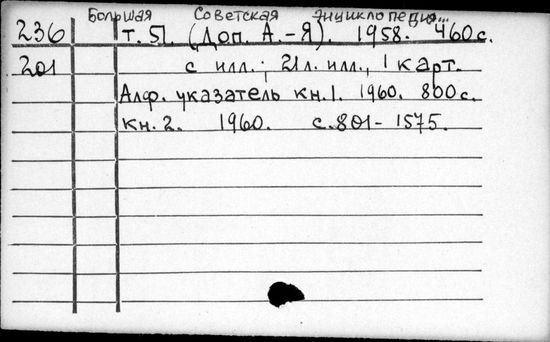 Большая Советская энциклопедия...
236 т. 51. (Доп. А.-Я). 1958. 460 с.
201 с илл.; 21 л. илл., 1 карт.
Алф. указатель кн. 1. 1960. 800 с.
кн. 2. 1960. с. 801- 1575.